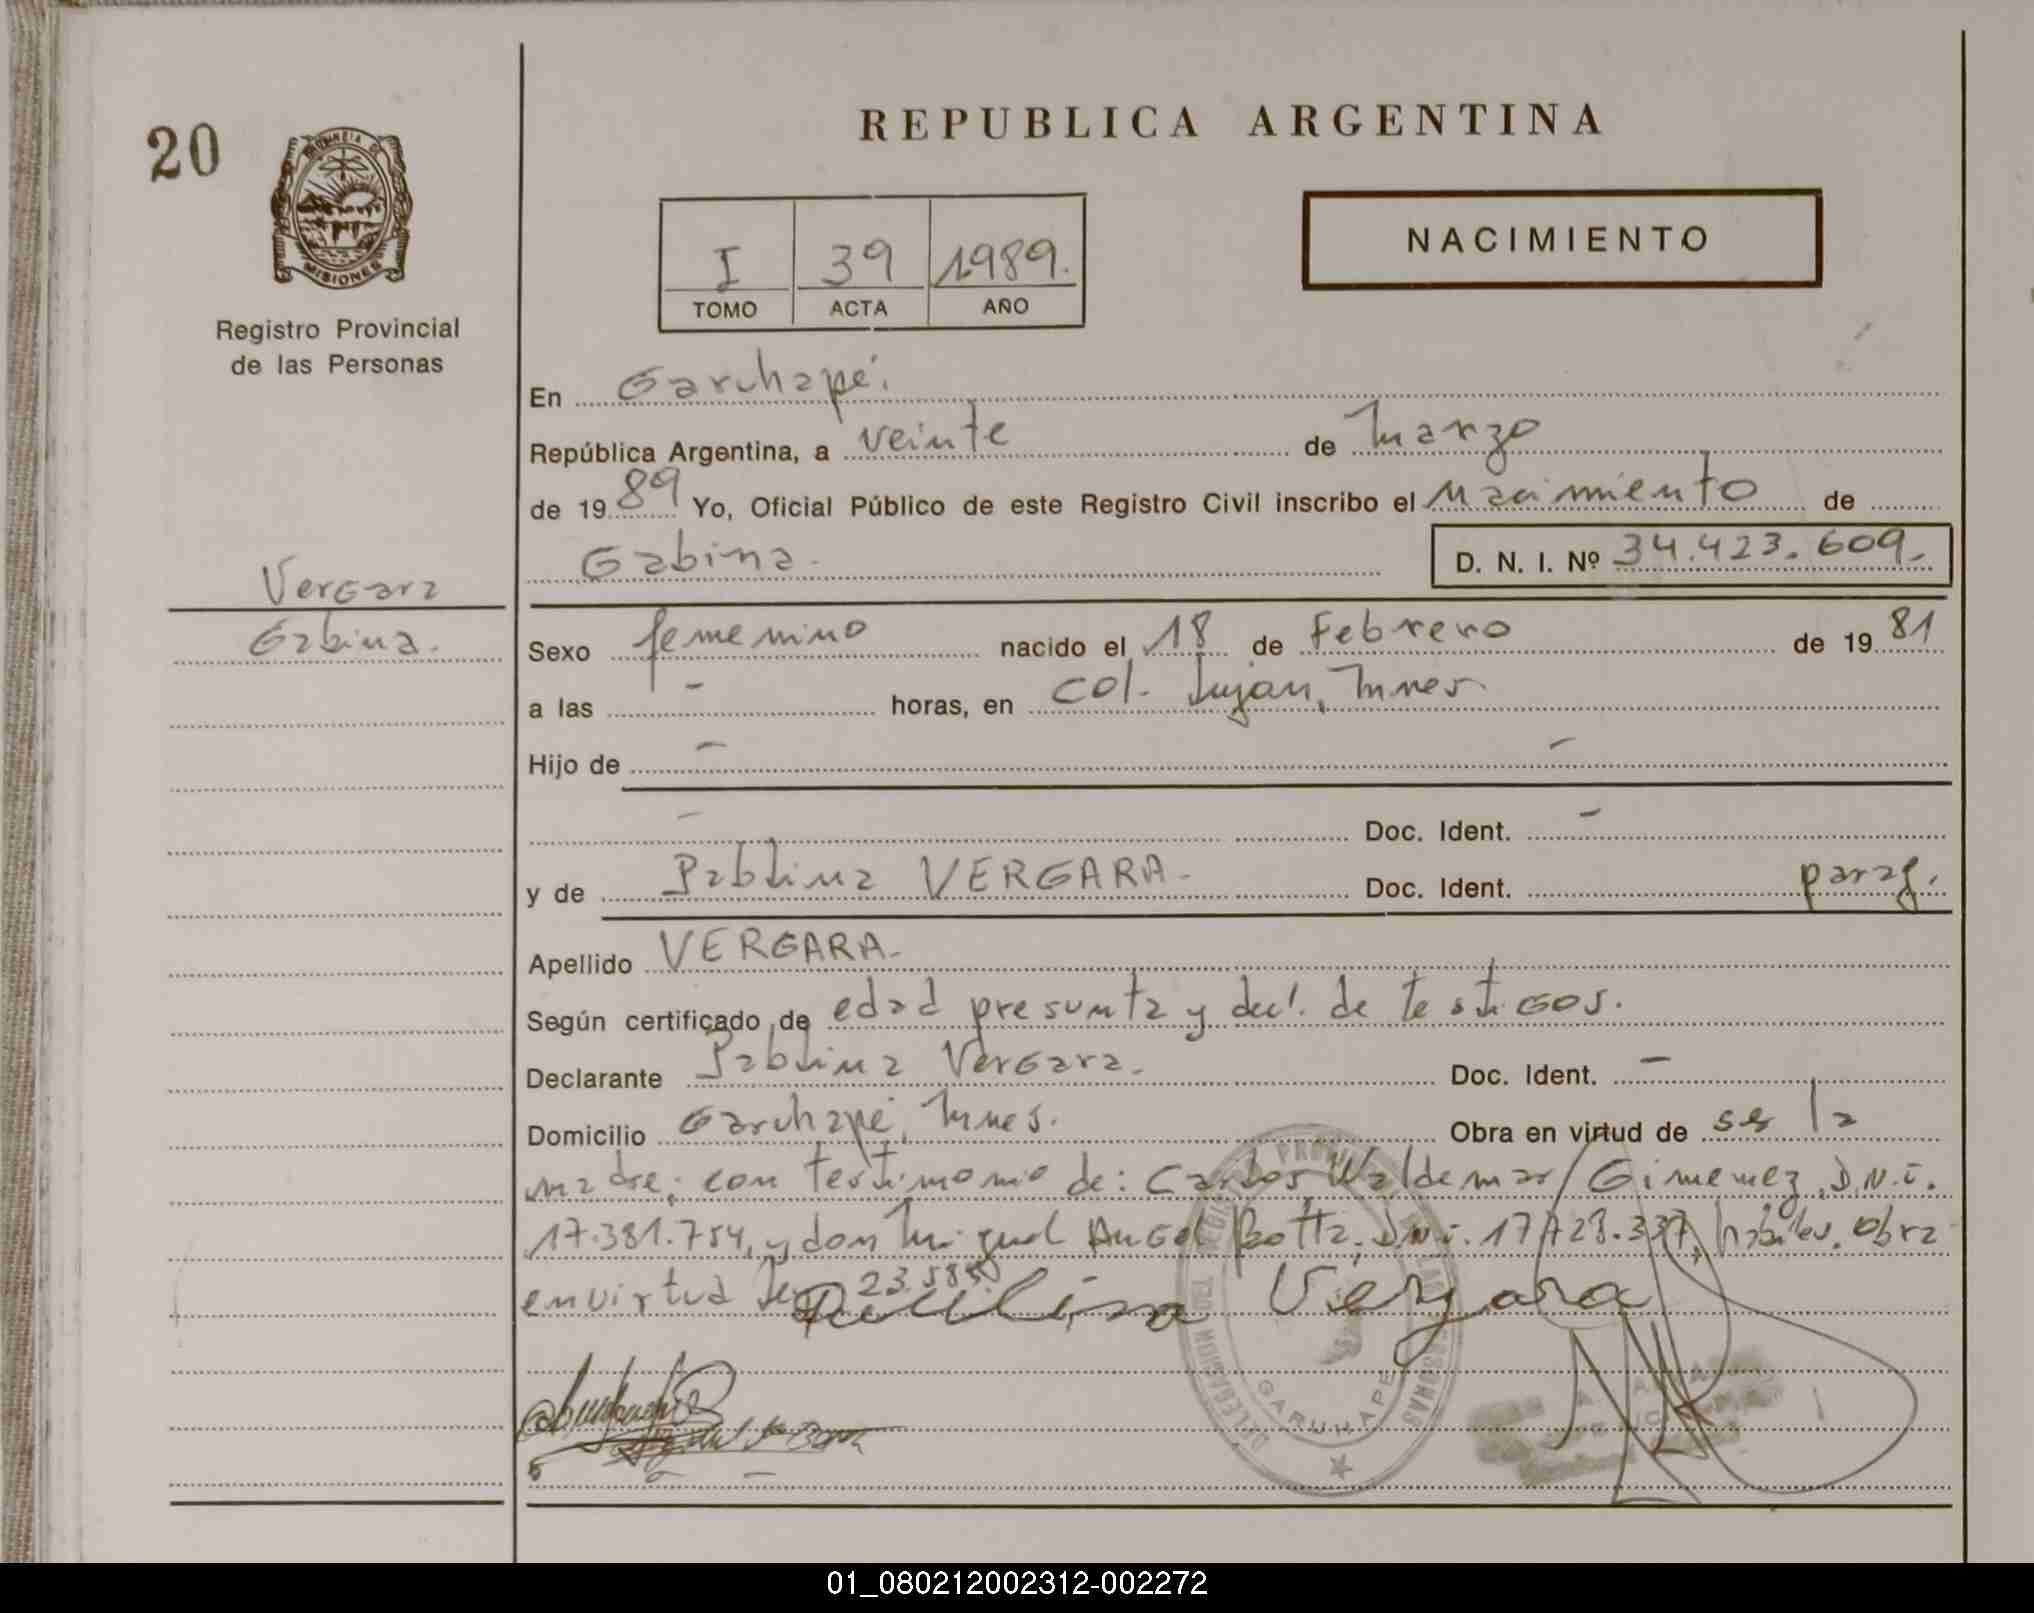 20
PROVINCIA DE
MISIONES
Registro Provincial
de las Personas
Vergara
Gabina.
REPUBLICA ARGENTINA
I 39 1989.
TOMO ACTA AÑO
NACIMIENTO
En Garuhapé.
República Argentina, a veinte de Marzo
de 1989 Yo, Oficial Público de este Registro Civil inscribo el Nacimiento de
Gabina. D. N. I. Nº 34.423.609.
Sexo femenino nacido el 18 de Febrero de 1981
a las - horas, en Col. Lujan, Mnes.
Hijo de - -
- Doc. Ident. -
y de Pablina VERGARA- Doc. Ident. parag.
Apellido VERGARA-
Según certificado de edad presunta y decl. de testigos.
Declarante Pablina Vergara. Doc. Ident. -
Domicilio Garuhapé, Mnes. Obra en virtud de ser la
madre; con testimonio de: Carlos Waldemar Gimenez, D.N.i.
17.381.754, y don Miguel Angel Botta, D.N.i. 17.723.337, hábiles. Obra
en virtud 23.585
Vergara
DELEGACION DEL REGISTRO PROVINCIAL DE LAS PERSONAS
GARUHAPE
01_080212002312-002272